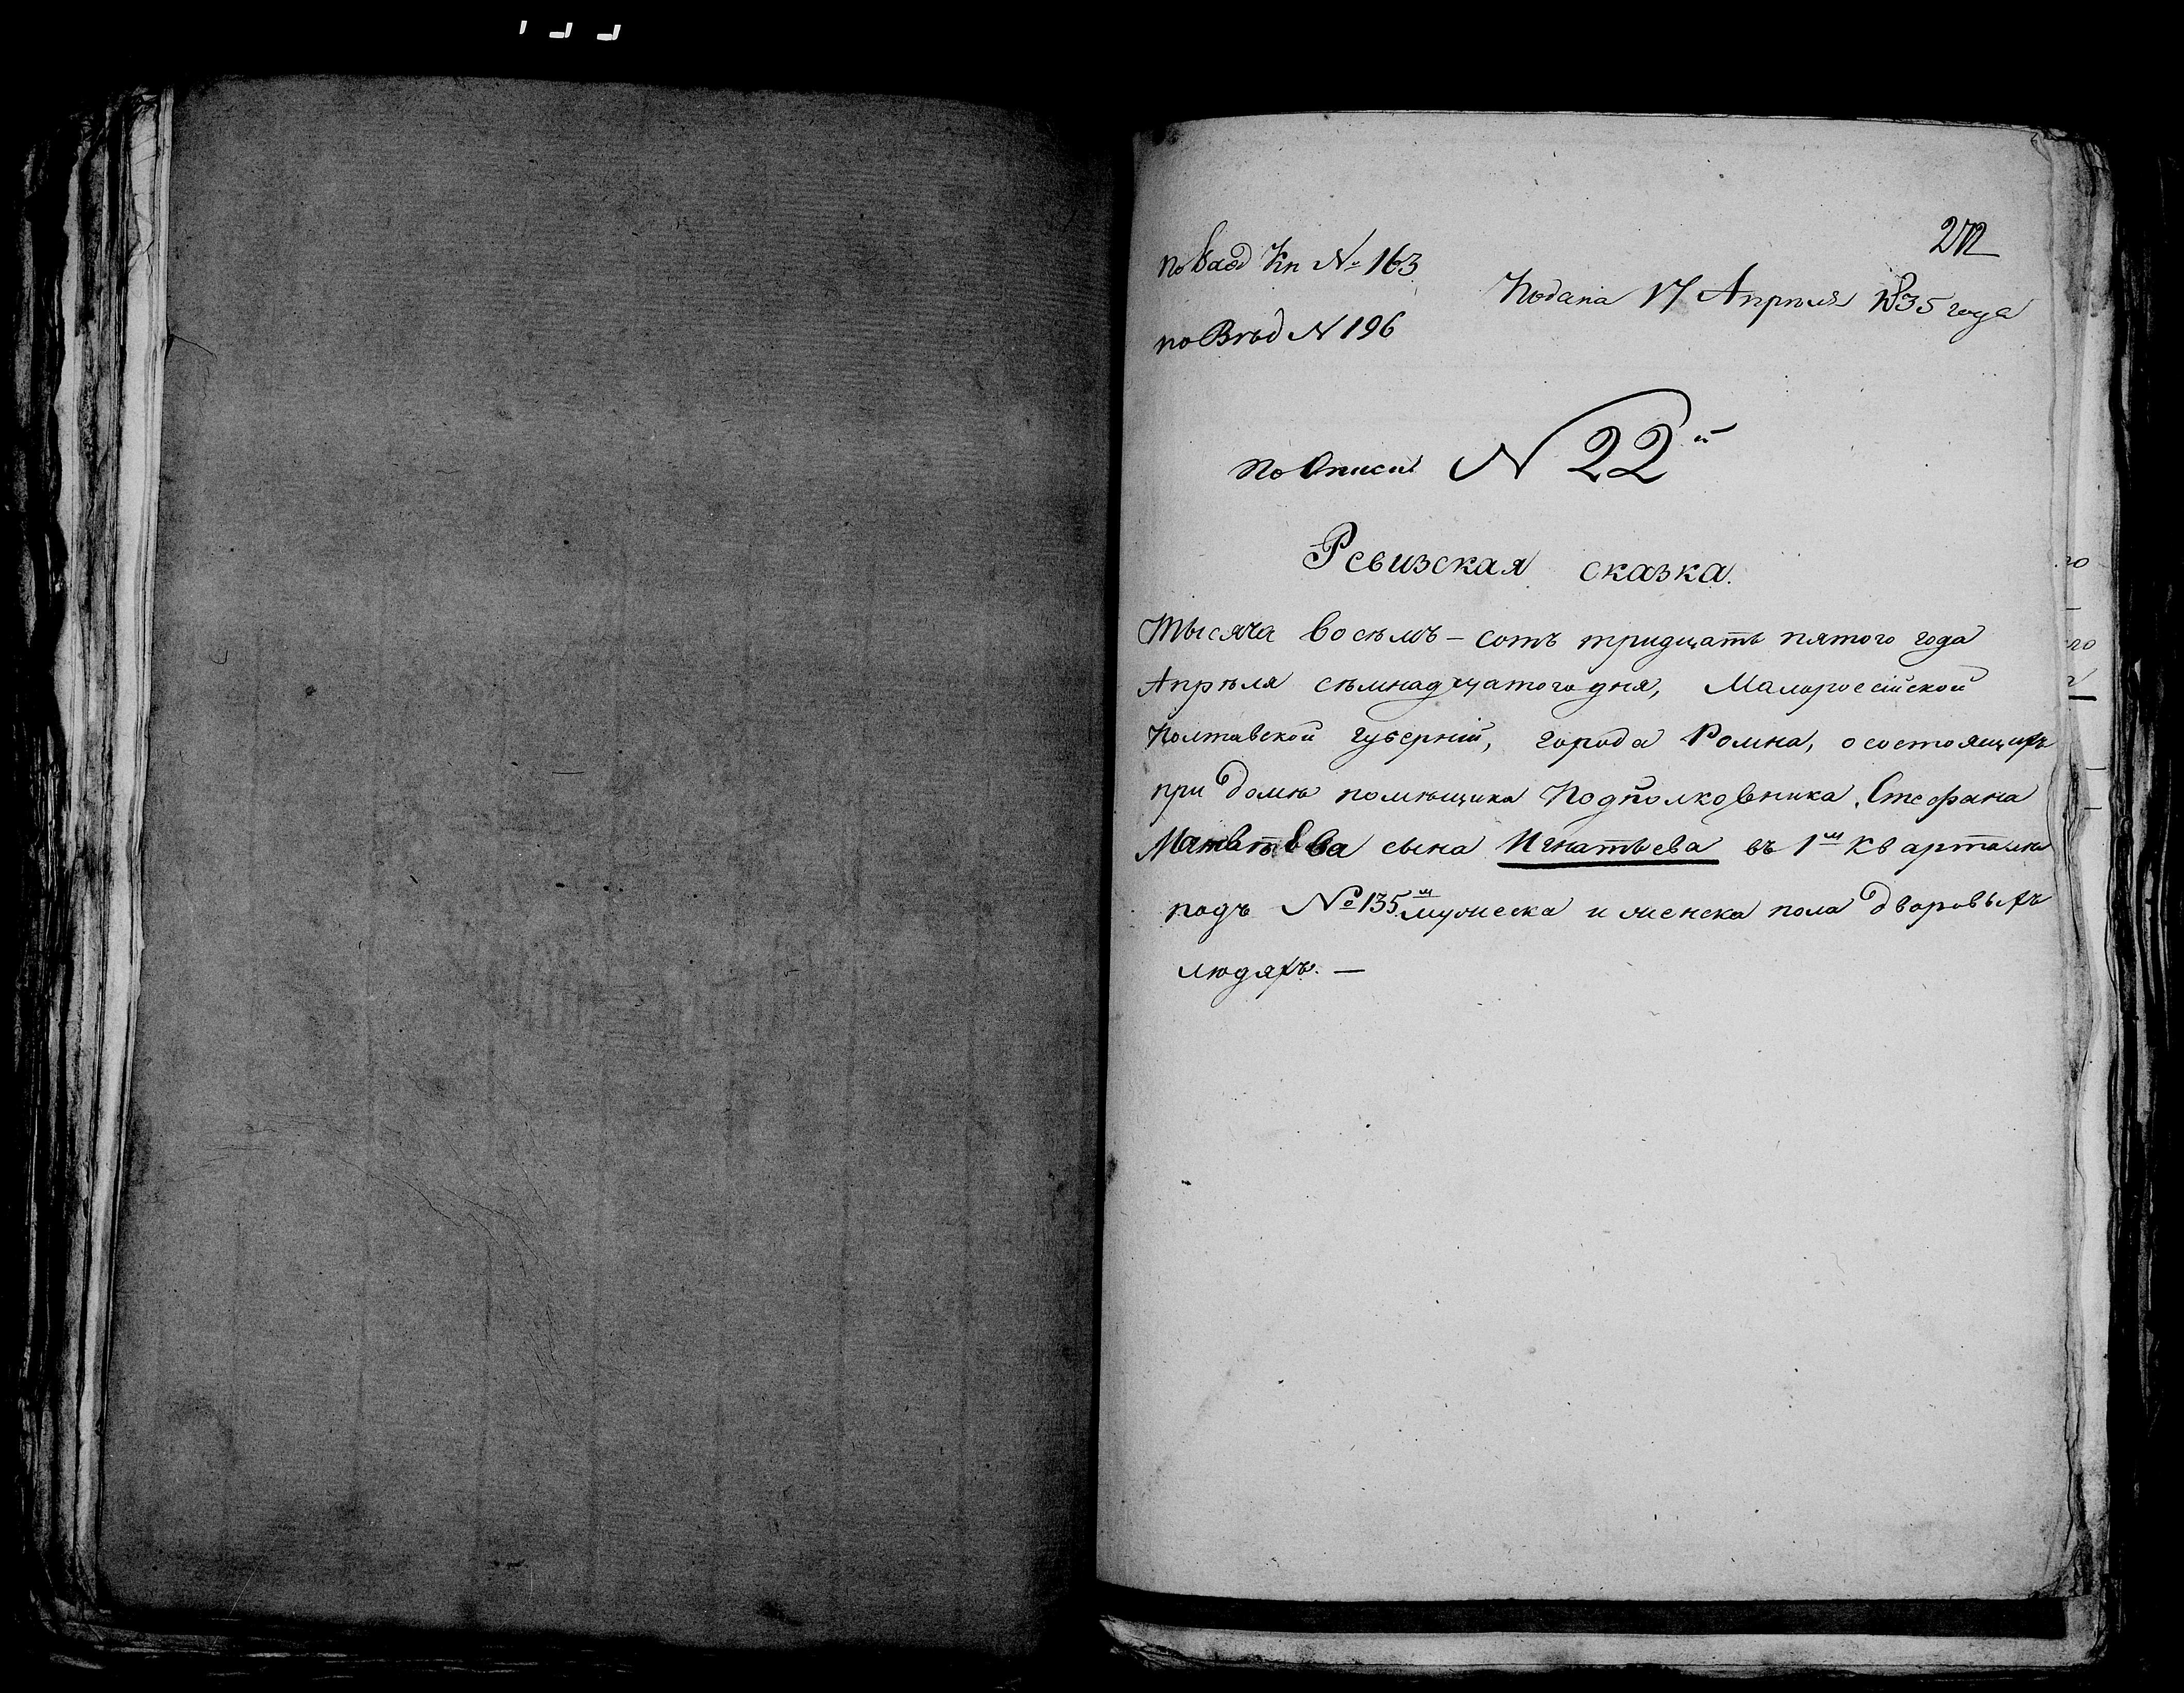 272
по Вход Кн № 163
Подана 17 Апреля 1835 года
по Вѣд N 196
по Описи N 22й
Ревизская сказка.
Тысяча восѣмъ-сотъ тридцать пятого года
Апрѣля сѣмнадцатого дня, Малороссійской
Полтавской губерніи, города Ромна, о состоящихъ
при домѣ помѣщика Подполковника Стефана
Матвѣева сына Игнатьева въ 1м кварталѣ
подъ № 135м мужеска и женска пола дворовыхъ
людяхъ. —